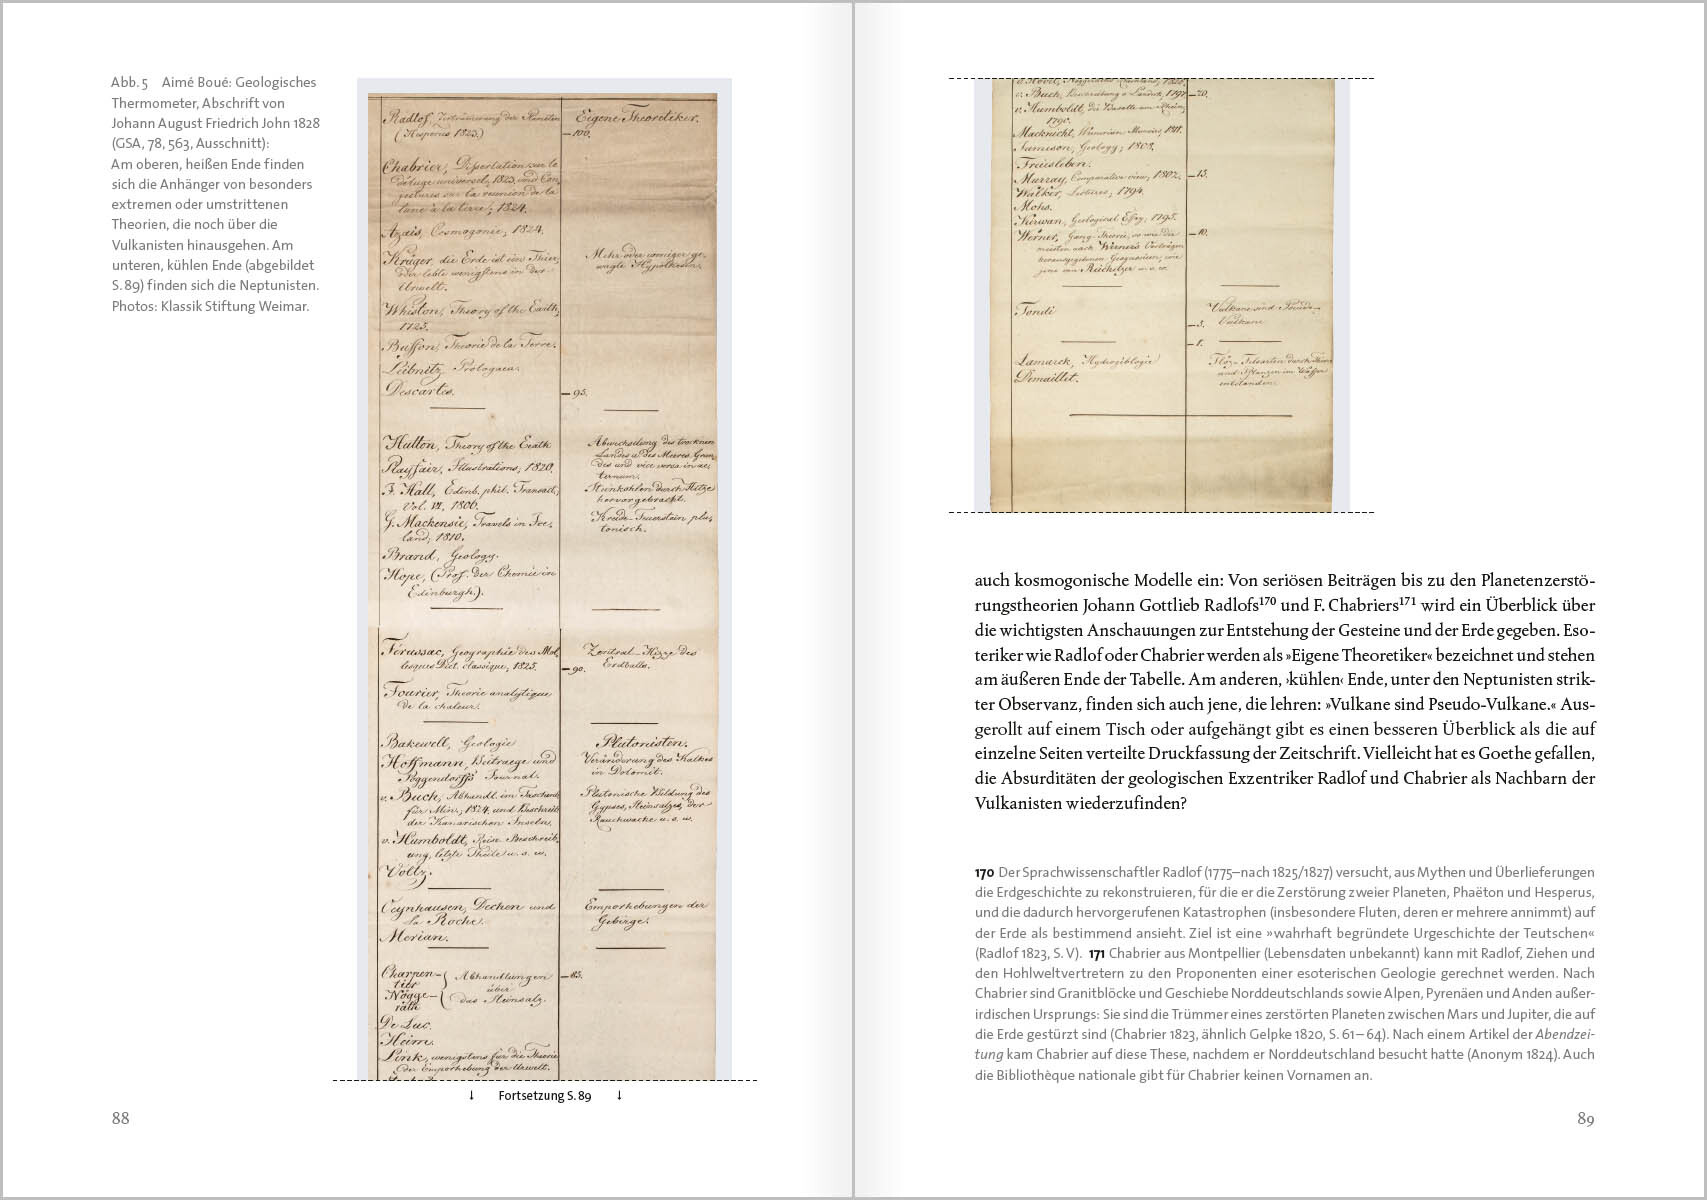 Abb. 5 Aimé Boué: Geologisches
Thermometer, Abschrift von
Johann August Friedrich John 1828
(GSA, 78, 563, Ausschnitt):
Am oberen, heißen Ende finden
sich die Anhänger von besonders
extremen oder umstrittenen
Theorien, die noch über die
Vulkanisten hinausgehen. Am
unteren, kühlen Ende (abgebildet
S. 89) finden sich die Neptunisten.
Photos: Klassik Stiftung Weimar.
Radlof, Zertrümerung der Planeten
(Hesperus 1823.)
Eigene Theoretiker.
100.
Chabrier, Dissertation sur le
déluge universel, 1823. und Con-
jectures sur la reunion de la
lune à la terre, 1824.
Azais, Cosmogonie, 1824.
Krüger, die Erde ist ein Thier,
oder lebte wenigstens in der
Urwelt.
Mehr oder weniger ge-
wagte Hypothesen.
Whiston, Theory of the Earth,
1725.
Buffon, Theorie de la Terre.
Leibnitz, Protogaea.
Descartes.
95.
Hutton, Theory of the Earth
Playfair, Illustrations, 1820.
J. Hall, Edinb. phil. Transact.,
Vol. VI. 1806.
G. Mackensie, Travels in Ice-
land, 1810.
Brand, Geology.
Hope, (Prof. der Chemie in
Edinburgh.).
Abwechslung des trocknen
Landes u. des Meeres Grun-
des und vice versa in ae-
ternum.
Steinkohlen durch Hitze
hervorgebracht.
Kreide-Feuerstein plu-
tonisch.
Ferussac, Geographie des Mol-
lesques Dict. classique, 1825.
Zentral-Hizze des
Erdballs.
90.
Fourier, Theorie analytique
de la chaleur.
Bakewell, Geologie
Hoffmann, Beitraege und
Poggendorffs Journal.
v. Buch, Abhandl. im Taschenb.
für Min., 1824. und Beschreib.
der Kanarischen Inseln.
v. Humboldt, Reise Beschreib-
ung, letzte Theile u. s. w.
Voltz.
Plutonisten.
Veränderung des Kalkes
in Dolomit.
Plutonische Bildung des
Gypses, Steinsalzes, der
Rauchwacke u. s. w.
Oeynhausen, Dechen und
La Roche.
Merian.
Emporhebungen der
Gebirge.
Charpen-
tier
Nögge-
rath
Abhandlungen
über
das Steinsalz.
85.
De Luc.
Heim.
Link, wenigstens für die Theorie
der Emporhebung der Urwelt.
↓ Fortsetzung S. 89 ↓
88
v. Buch, Beschreibung v. Landeck, 1797
20.
v. Humboldt, die Basalte am Rhein,
1790.
Macknicht, Wernerian Memoirs, 1811.
Jameson, Geology, 1808.
Freiesleben.
Murray, Comparative view, 1802.
15.
Walker, Lectures, 1794.
Mohs.
Kirwan, Geological Essay, 1795.
Werner, Gang-Theorie, so wie die
meisten nach Werners Vorträgen
herausgegebenen Geognosieen, wie
jene von Reichetzer u. s. w.
10.
Tondi
Vulkane sind Pseudo-
Vulkane
5.
1.
Lamarck, Hydrogéologie
Demaillet.
Flöz-Felsarten durch Thiere
und Pflanzen im Wasser
entstanden.
auch kosmogonische Modelle ein: Von seriösen Beiträgen bis zu den Planetenzerstö-
rungstheorien Johann Gottlieb Radlofs170 und F. Chabriers171 wird ein Überblick über
die wichtigsten Anschauungen zur Entstehung der Gesteine und der Erde gegeben. Eso-
teriker wie Radlof oder Chabrier werden als »Eigene Theoretiker« bezeichnet und stehen
am äußeren Ende der Tabelle. Am anderen, ›kühlen‹ Ende, unter den Neptunisten strik-
ter Observanz, finden sich auch jene, die lehren: »Vulkane sind Pseudo-Vulkane.« Aus-
gerollt auf einem Tisch oder aufgehängt gibt es einen besseren Überblick als die auf
einzelne Seiten verteilte Druckfassung der Zeitschrift. Vielleicht hat es Goethe gefallen,
die Absurditäten der geologischen Exzentriker Radlof und Chabrier als Nachbarn der
Vulkanisten wiederzufinden?
170 Der Sprachwissenschaftler Radlof (1775–nach 1825/1827) versucht, aus Mythen und Überlieferungen
die Erdgeschichte zu rekonstruieren, für die er die Zerstörung zweier Planeten, Phaëton und Hesperus,
und die dadurch hervorgerufenen Katastrophen (insbesondere Fluten, deren er mehrere annimmt) auf
der Erde als bestimmend ansieht. Ziel ist eine »wahrhaft begründete Urgeschichte der Teutschen«
(Radlof 1823, S. V). 171 Chabrier aus Montpellier (Lebensdaten unbekannt) kann mit Radlof, Ziehen und
den Hohlweltvertretern zu den Proponenten einer esoterischen Geologie gerechnet werden. Nach
Chabrier sind Granitblöcke und Geschiebe Norddeutschlands sowie Alpen, Pyrenäen und Anden außer-
irdischen Ursprungs: Sie sind die Trümmer eines zerstörten Planeten zwischen Mars und Jupiter, die auf
die Erde gestürzt sind (Chabrier 1823, ähnlich Gelpke 1820, S. 61–64). Nach einem Artikel der Abendzei-
tung kam Chabrier auf diese These, nachdem er Norddeutschland besucht hatte (Anonym 1824). Auch
die Bibliothèque nationale gibt für Chabrier keinen Vornamen an.
89